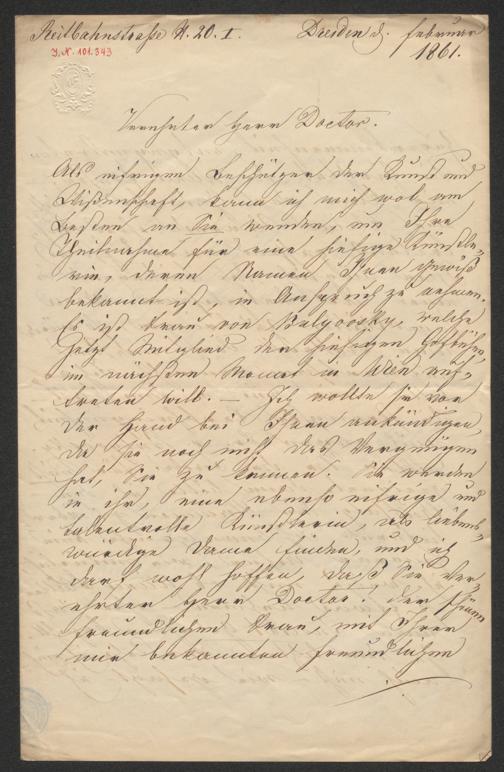 Reitbahnstrasse N. 20. I. Dresden d. februar
1861.
J. N. 101.343
Verehrter Herr Doctor.
Als eifrigen Beschützer der Kunst und
Wißenschaft, kann ich mich wol am
besten an Sie wenden, um Ihre
Theilnahme für eine hiesige Künstle-
rin, deren Namen Ihnen gewiß
bekannt ist, in Anspruch zu nehmen.
Es ist Frau von welche
jetzt Mitglied der hiesigen Hofbühne,
im nächsten Monat in Wien auf-
treten will. — Ich wollte sie von
der Hand bei Ihnen ankündigen,
da sie noch nicht das Vergnügen
hat, Sie zu kennen. Sie werden
in ihr, eine ebenso eifrige und
talentvolle Künstlerin, als liebens-
würdige Dame finden, und ich
darf wohl hoffen, daß Sie Ver-
ehrter Herr Doctor! der schönen
freundlichen Frau, mit Ihrer
mir bekannten freundlichen